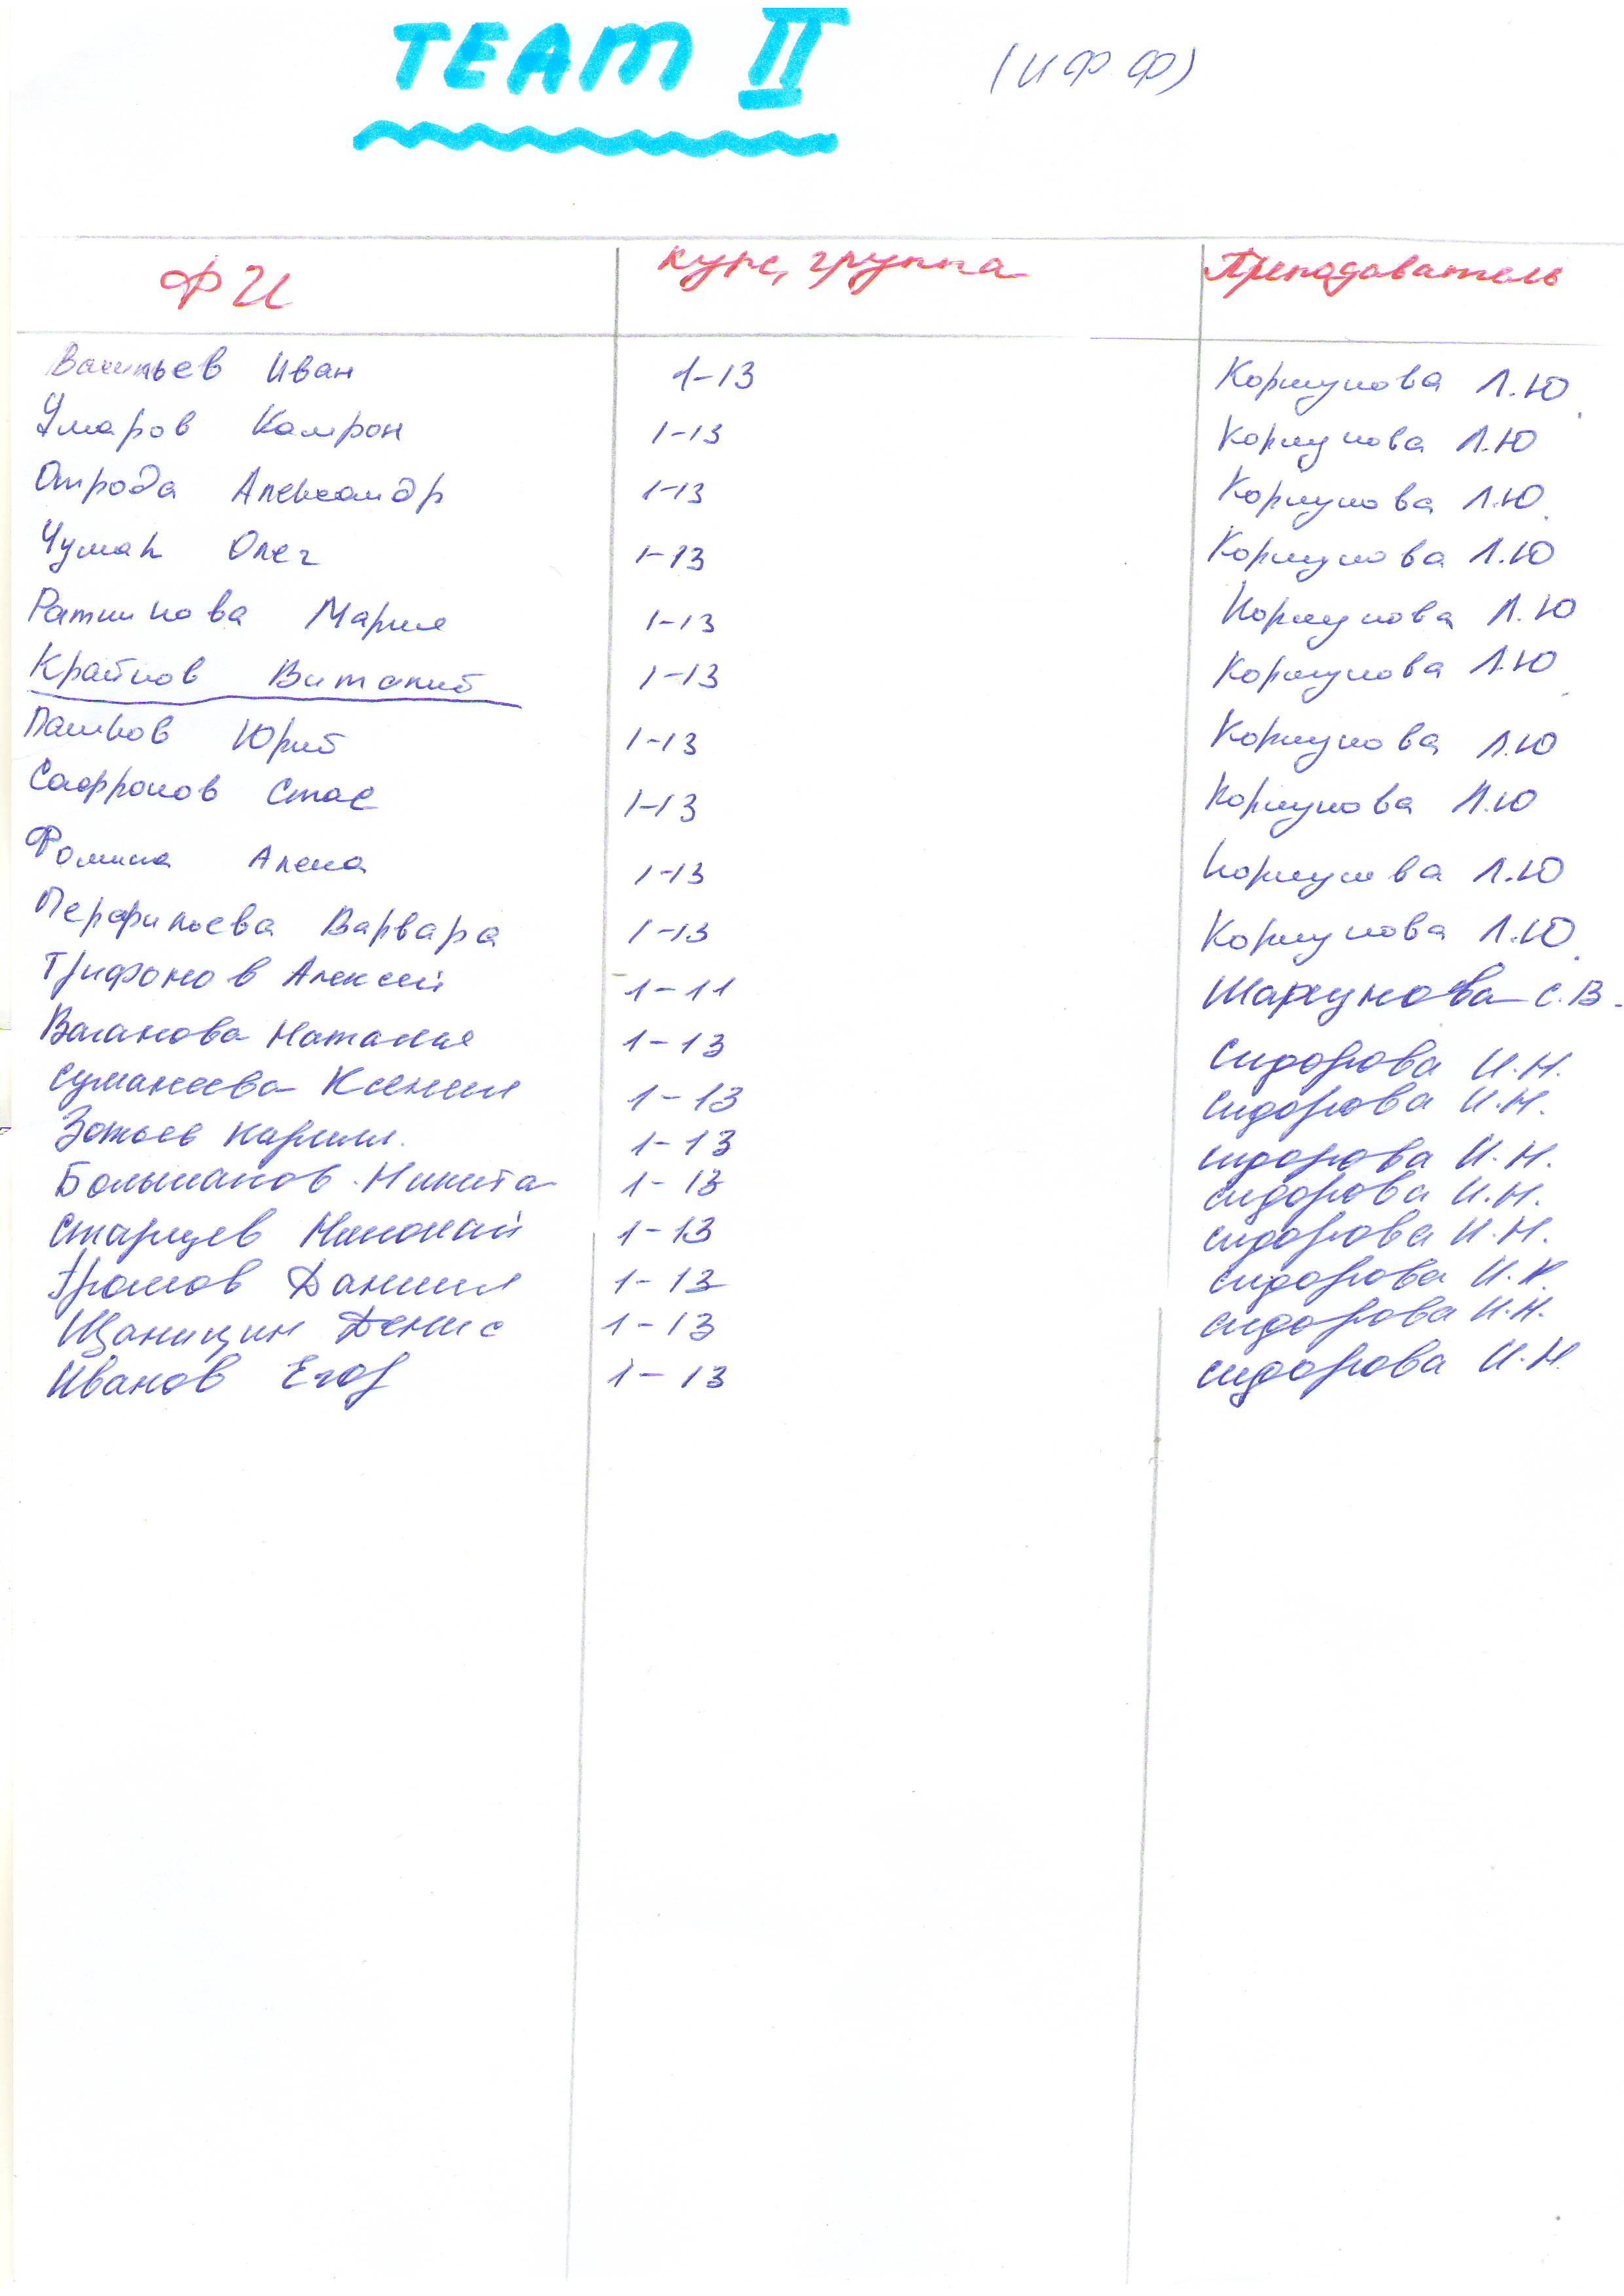 TEAM II (ИФФ)
ФИ курс, группа Преподаватель
Васильев Иван 1-13 Коршунова Л.Ю.
Умаров Камрон 1-13 Коршунова Л.Ю
Отрода Александр 1-13 Коршунова Л.Ю.
Чумак Олег 1-13 Коршунова Л.Ю
Мария 1-13 Коршунова Л.Ю
Крайнов Виталий 1-13 Коршунова Л.Ю.
Пашков Юрий 1-13 Коршунова Л.Ю
Сафронов Стас 1-13 Коршунова Л.Ю
Фомина Алена 1-13 Коршунова Л.Ю
Перфильева Варвара 1-13 Коршунова Л.Ю.
Трифонов Алексей 1-11 С.В.
Ваганова Наталья 1-13 Сидорова И.Н.
Ксения 1-13 Сидорова И.Н.
Зотьев Кирилл. 1-13 Сидорова И.Н.
Большаков Никита 1-13 Сидорова И.Н.
Старцев Николай 1-13 Сидорова И.Н.
Громов Даниил 1-13 Сидорова И.Н.
Щаницин Денис 1-13 Сидорова И.Н.
Иванов Егор 1-13 Сидорова И.Н.